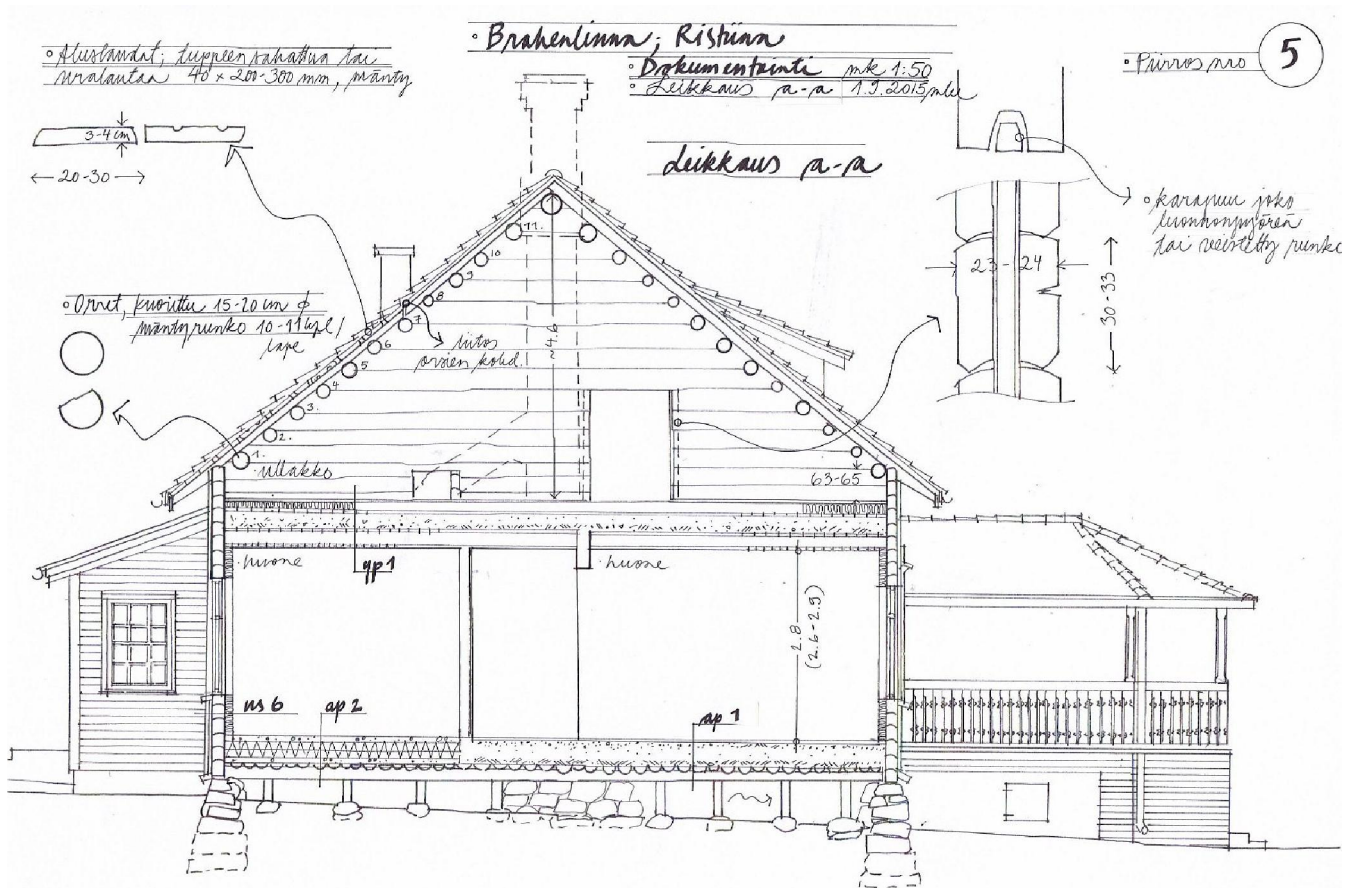 • Brahenlinna; Ristiina
• Dokumentointi mk 1:50
• Leikkaus a-a 1.9.2015
• Piirros nro 5
• Aluslaudat; tuppeen sahattua tai
uralautaa 40 x 200-300 mm, mänty
3-4 cm
← 20-30 →
Leikkaus a-a
• karapuu joko
luonnonpyöreä
tai veistetty runko
23 - 24
30-33
• Orret, kuorittu 15-20 cm ϕ
mäntyrunko 10-11 kpl/
lape
liitos
orsien kohd.
11.
10
9
8
7
6
5
4
3.
2.
1.
~4.6
• ullakko
63-65
• huone
yp1
• huone
2.8
(2.6-2.9)
us 6
ap 2
ap 1